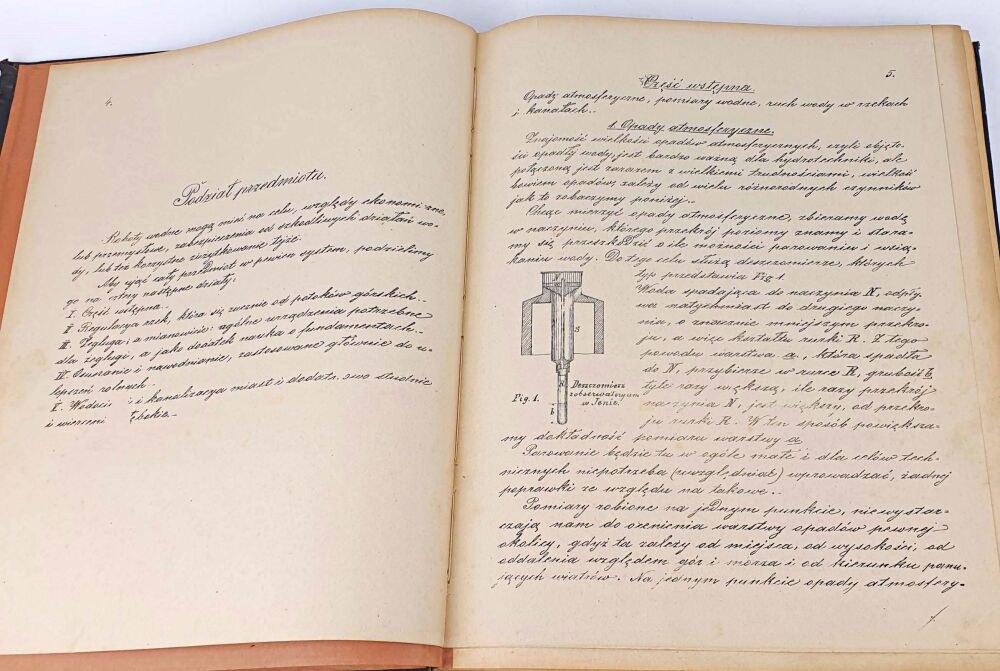 4.
Podział przedmiotu.
Roboty wodne mogą mieć na celu, względy ekonomiczne,
lub przemysłowe, zabezpieczenia od szkodliwych działań wo-
dy, lub też korzystne zużytkowanie tejże.
Aby ująć cały przedmiot w pewien system, podzielimy
go na następne działy:
I. Część wstępna..
II. Regulacya rzek, która się zacznie od potoków górskich..
III. Żegluga, a mianowicie: ogólne urządzenia potrzebne
dla żeglugi, a jako dodatek nauka o fundamentach..
IV. Osuszanie i nawodnianie, zastosowane głównie do u-
lepszeń rolnych.
V. i kanalizacya miast i studnie
i wiercenie
5.
Część wstępna.
Opady atmosferyczne, pomiary wodne, ruch wody w rzekach
i kanałach..
1. Opady atmosferyczne.
Znajomość wielkości opadów atmosferycznych, czyli objęto-
ści opadłej wody, jest bardzo ważną dla hydrotechnika, ale
połączoną jest zarazem z wielkiemi trudnościami, wielkość
bowiem opadów, zależy od wielu różnorodnych czynników
jak to zobaczymy poniżej..
Chcąc mierzyć opady atmosferyczne, zbieramy wodę
w naczyniu, którego przekrój poziomy znamy i stara-
my się przeszkodzić o ile możności parowaniu i wsią-
kaniu wody. Do tego celu służą deszczomierze, których
typ przedstawia Fig 1.
Woda spadająca do naczynia N, odpły-
wa natychmiast do drugiego naczy-
nia, o znacznie mniejszym przekro-
ju, a więc kształtu rurki R. Z tego
powodu warstwa a, która spadła
do N, przybierze w rurce R, grubość b,
tyle razy większą, ile razy przekrój
naczynia N, jest większy, od przekro-
ju rurki R. W ten sposób powiększa-
S
R
b
Fig. 1.
Deszczomierz
z obserwatoryum
w Jenie.
my dokładność pomiaru warstwy a
Parowanie będzie tu w ogóle małe i dla celów tech-
nicznych niepotrzeba (uwzględniać) wprowadzać, żadnej
poprawki ze względu na takowe..
Pomiary robione na jednym punkcie, niewystar-
czają nam do ocenienia warstwy opadów pewnej
okolicy, gdyż ta zależy od miejsca, od wysokości, od
oddalenia względem gór i morza i od kierunku panu-
jących wiatrów. Na jednym punkcie opady atmosfery-
1.